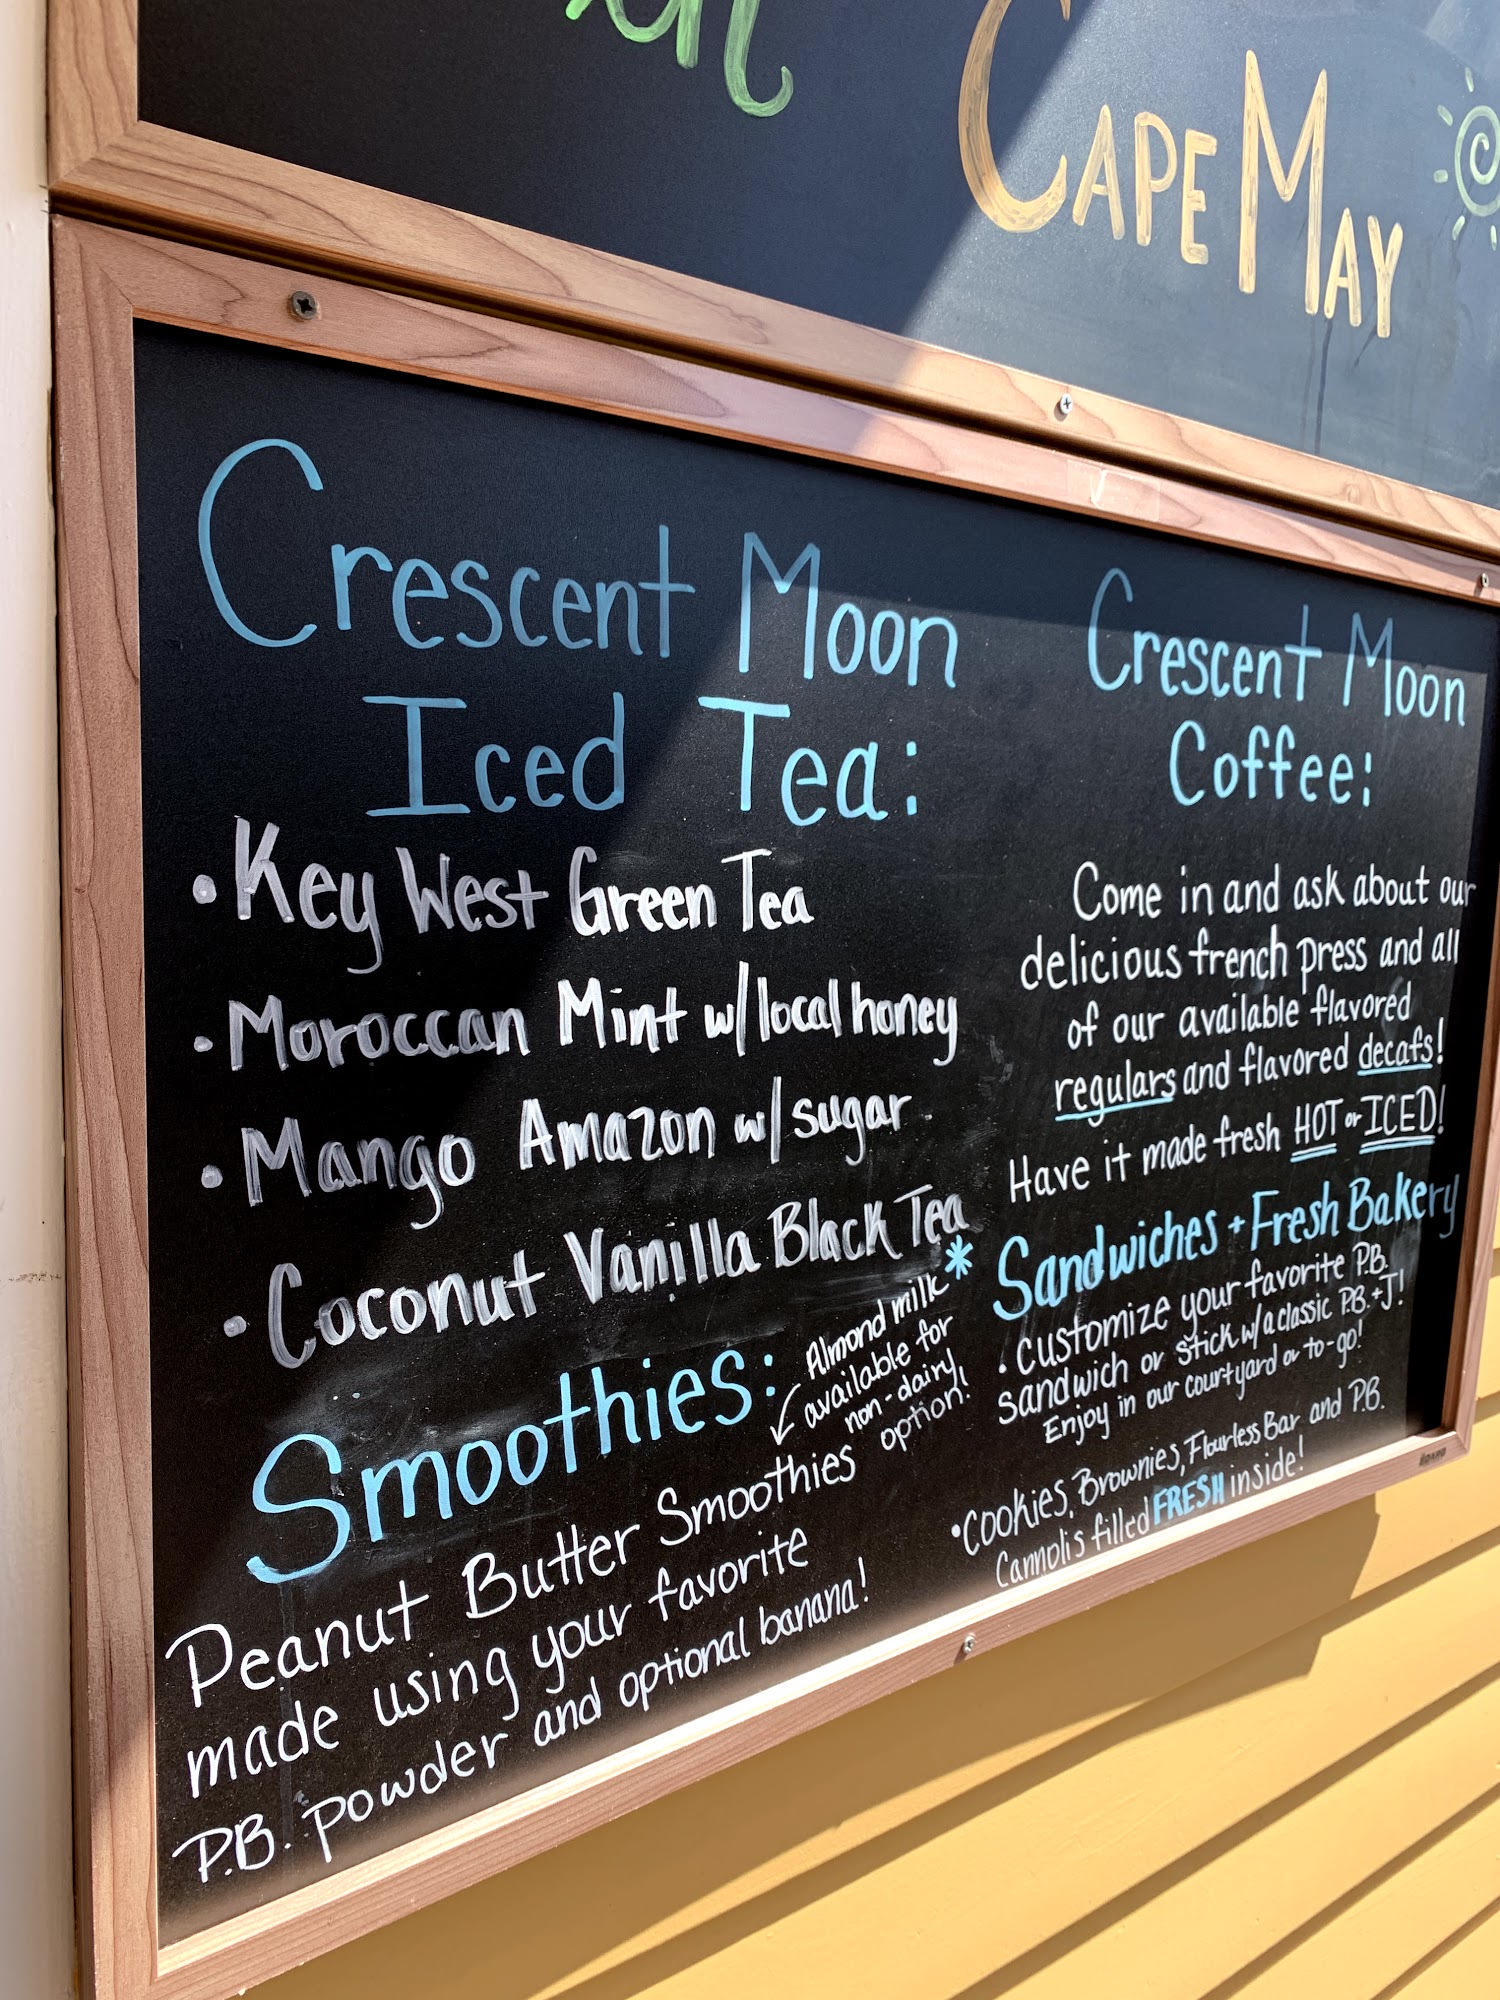 Cape May
Crescent Moon
Iced Tea:
• Key West Green Tea
• Moroccan Mint w/local honey
• Mango Amazon w/sugar
• Coconut Vanilla Black Tea
*
Smoothies:
Almond milk
available for
non-dairy
option!
Peanut Butter Smoothies
made using your favorite
P.B. powder and optional banana!
Crescent Moon
Coffee:
Come in and ask about our
delicious french press and all
of our available flavored
regulars and flavored decafs!
Have it made fresh HOT or ICED!
Sandwiches + Fresh Bakery
• customize your favorite P.B.
sandwich or stick w/a classic P.B.+J!
Enjoy in our courtyard or to-go!
• cookies, Brownies, Flourless Bar and P.B.
Cannolis filled FRESH inside!